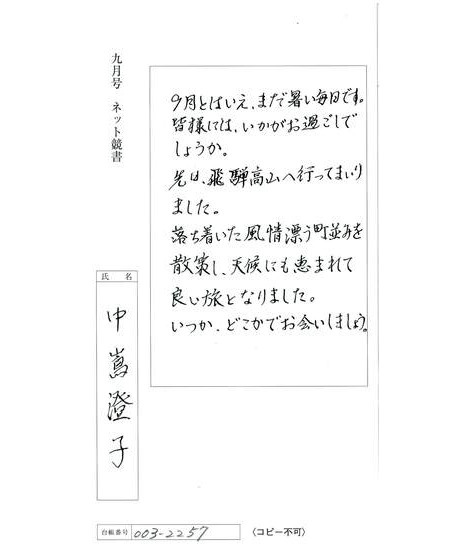 九月号 ネット競書
9月とはいえ、まだ暑い毎日です。
皆様には、いかがお過ごしで
しょうか。
先日、飛騨高山へ行ってまいり
ました。
落ち着いた風情漂う町並みを
散策し、天候にも恵まれて
良い旅となりました。
いつか、どこかでお会いしましょう。
氏名
中嶌澄子
台帳番号 003-2257
〈コピー不可〉